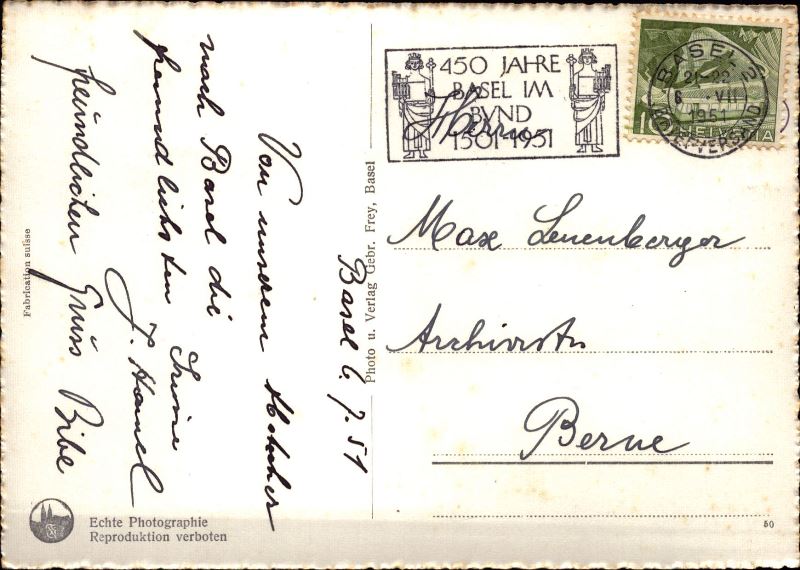 Basel 6. 7. 51
Von unserem
nach Basel die
freundlichsten Grüsse
J. Hamel
freundlichen Gruss Bibe
Fabrication suisse
Echte Photographie
Reproduktion verboten
Photo u. Verlag Gebr. Frey, Basel
450 JAHRE
BASEL IM
BVND
1501-1951
BASEL 2
21-22
6. VII
1951
BRIEFVERSAND
10 HELVETIA
Herrn
Max Leuenberger
Archivista
Berne
50